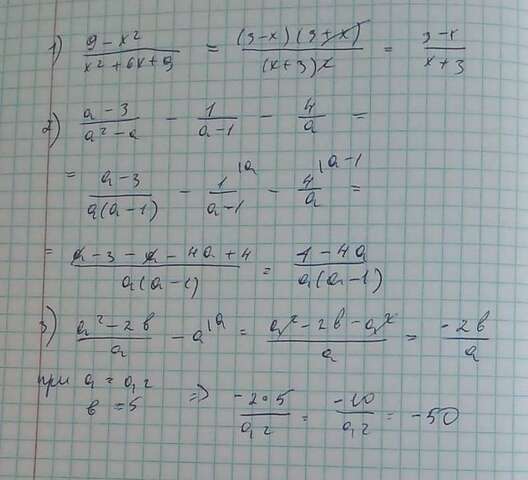 1) (9 - x²)/(x² + 6x + 9) = ((3 - x)(3 + x))/((x + 3)²) = (3 - x)/(x + 3)
2) (a - 3)/(a² - a) - 1/(a - 1) - 4/a =
= (a - 3)/(a(a - 1)) - 1/(a - 1) |a - 4/a |a - 1 =
= (a - 3 - a - 4a + 4)/(a(a - 1)) = (1 - 4a)/(a(a - 1))
3) (a² - 2b)/a - a |a = (a² - 2b - a²)/a = (-2b)/a
при a = 0,2
b = 5 => (-2•5)/(0,2) = (-10)/(0,2) = -50